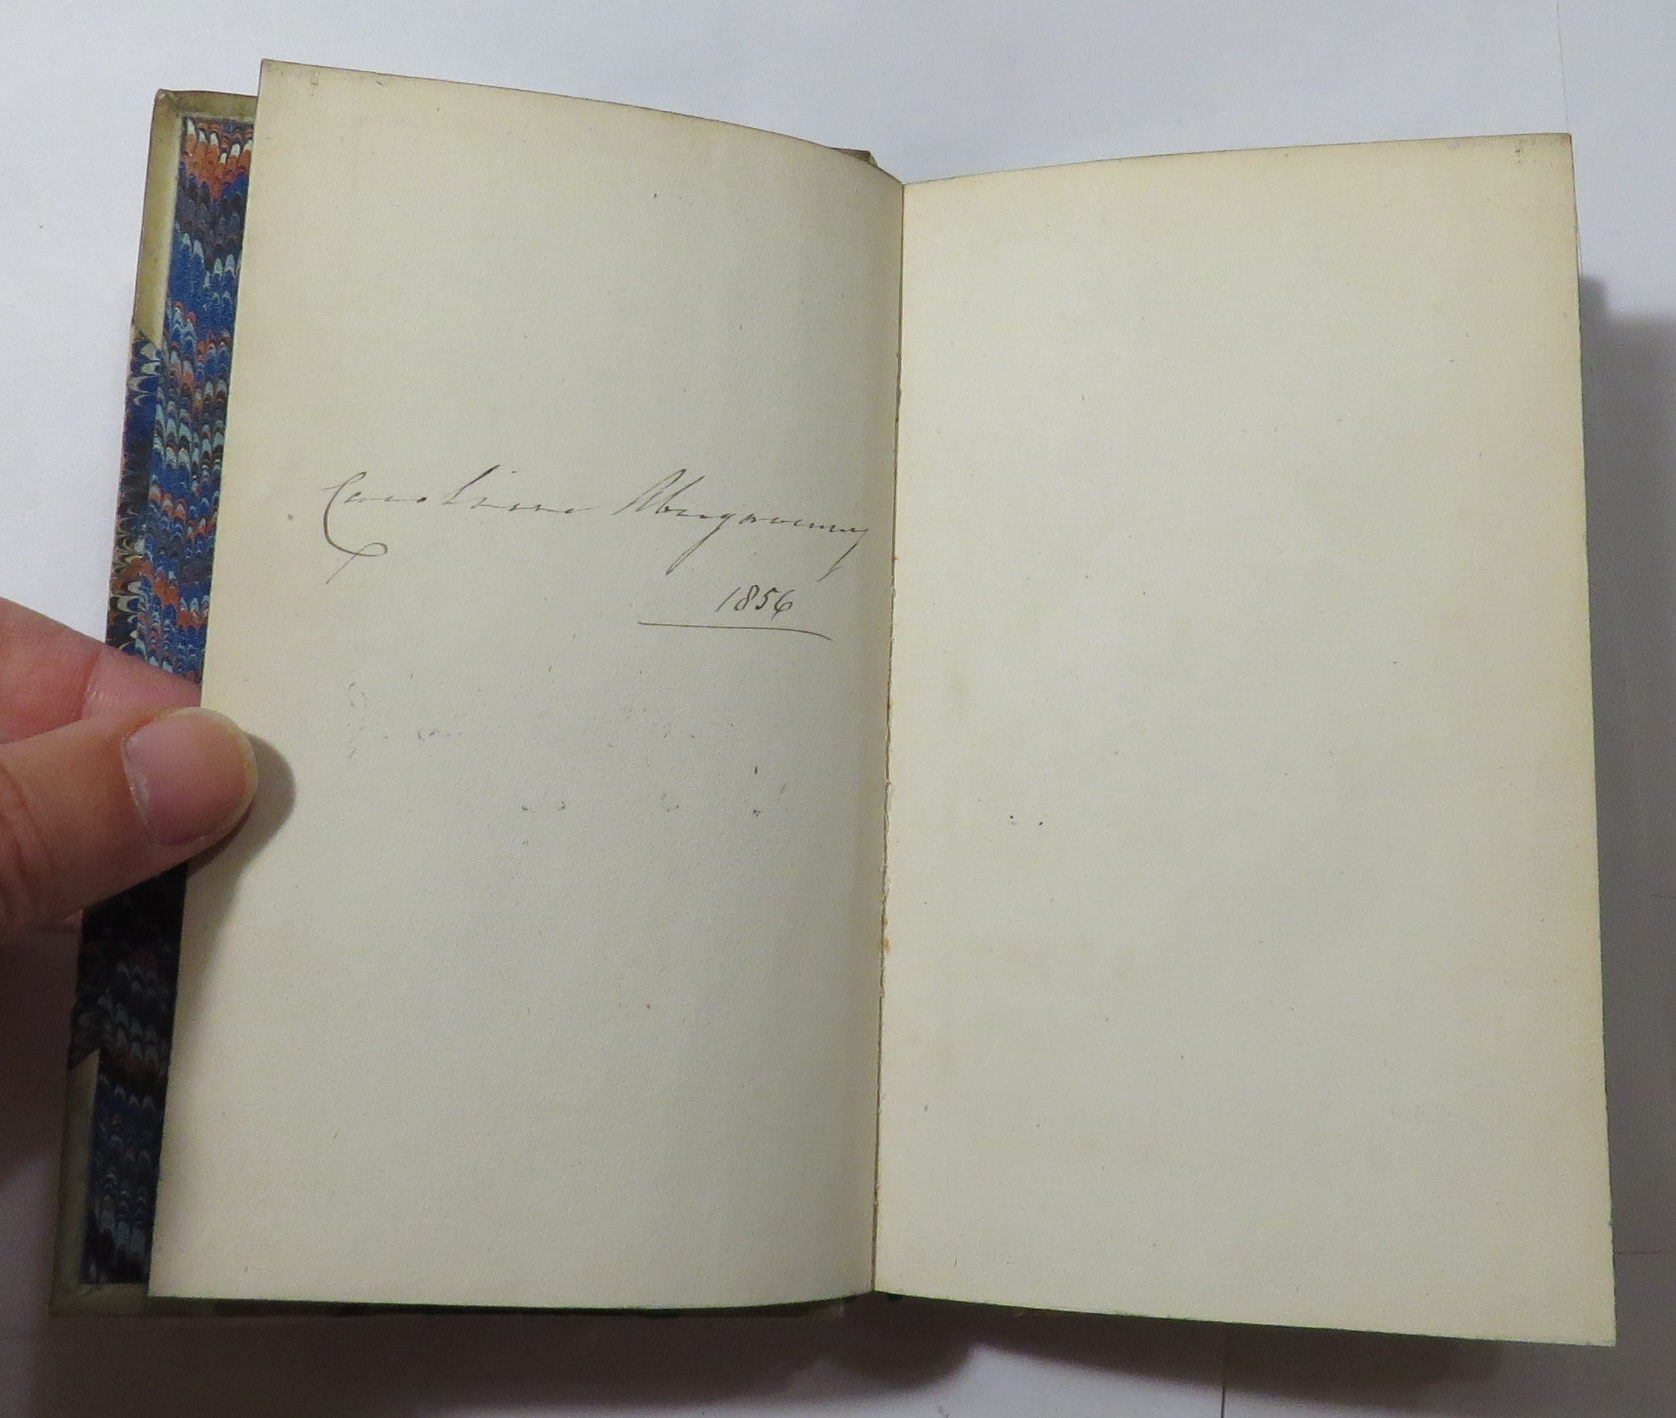 Caroline Abergavenny
1856